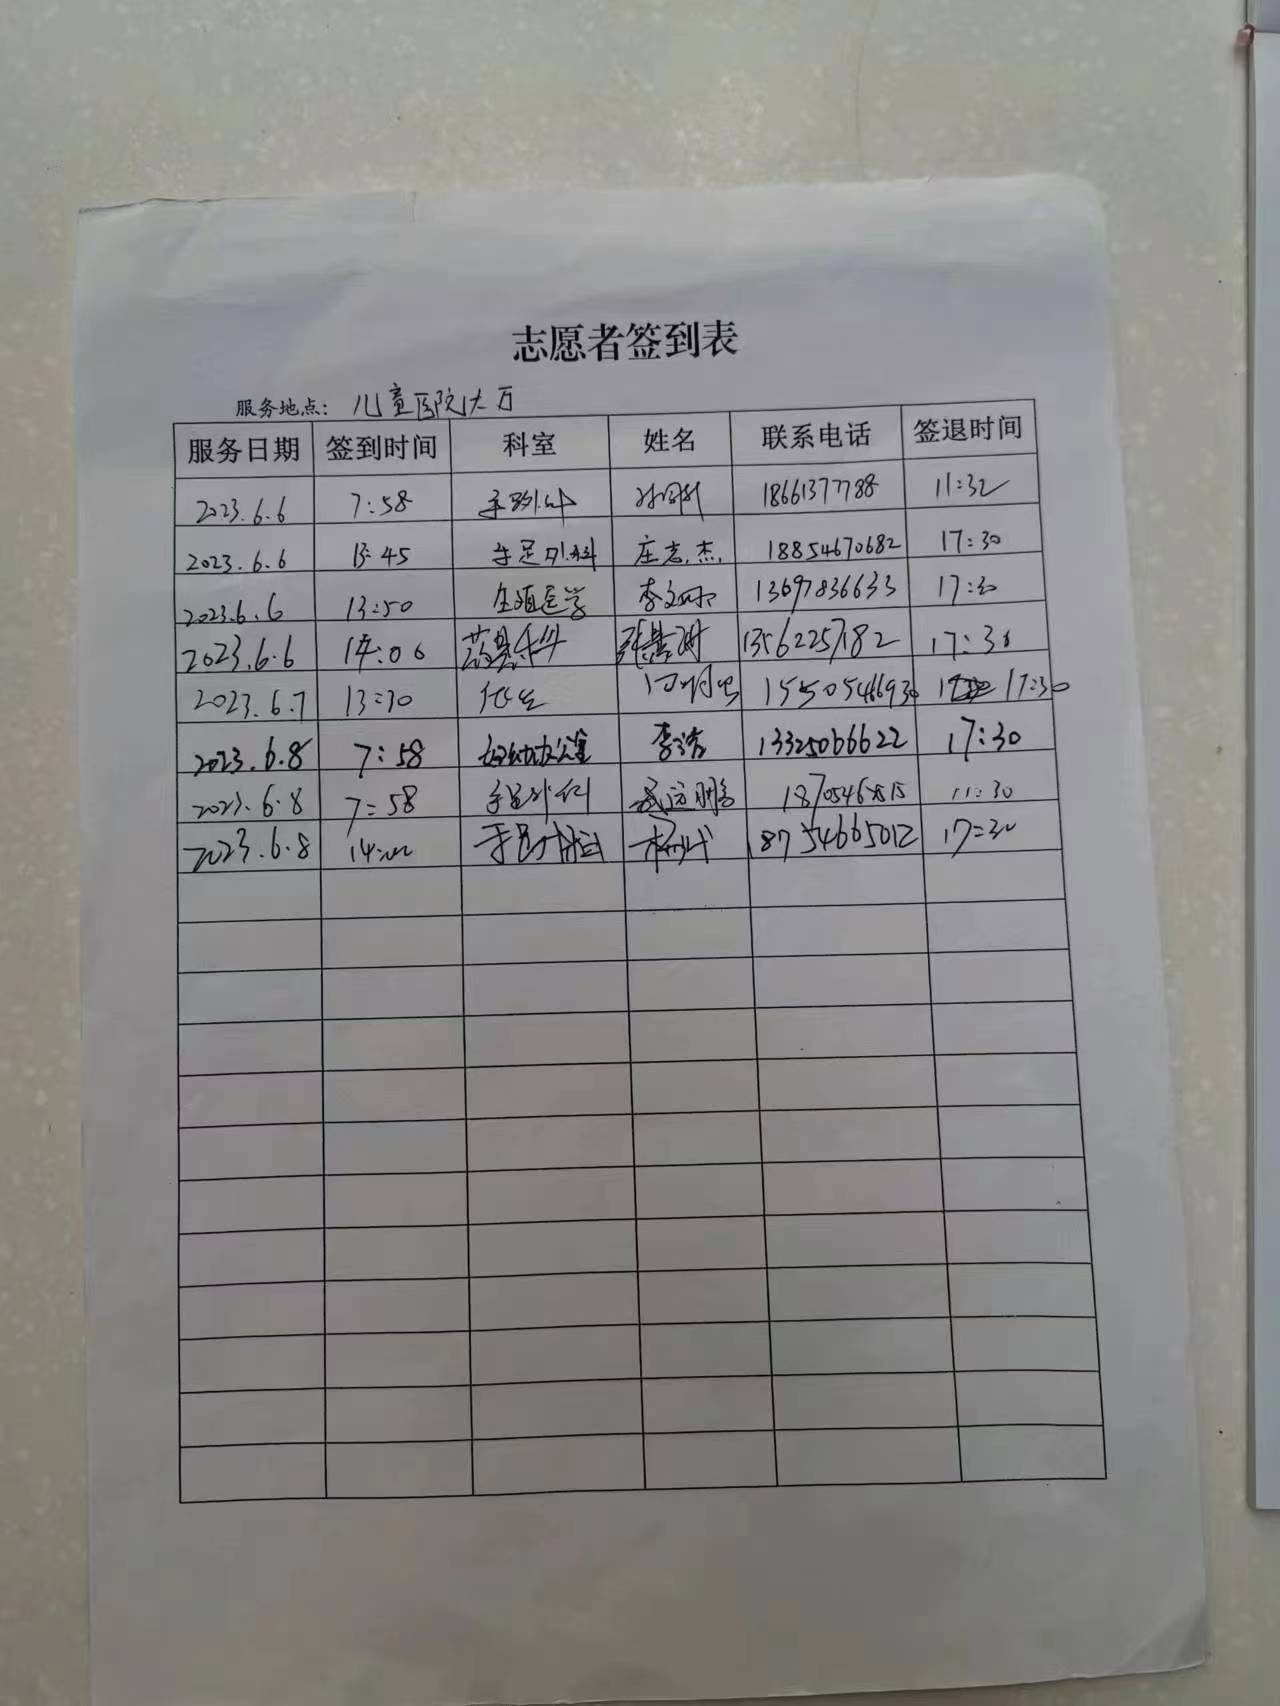 志愿者签到表
服务地点: 儿童医院大厅
服务日期 签到时间 科室 姓名 联系电话 签退时间
2023.6.6 7:58 18661377788 11:32
2023.6.6 13:45 手足外科 庄志杰 18854670682 17:30
2023.6.6 13:50 生殖医学 13697836633 17:30
2023.6.6 14:06 13562257182 17:30
2023.6.7 13:30 15505466930 17:30
2023.6.8 7:58 妇幼办公室 李浩 13325066622 17:30
2023.6.8 7:58 手足外科 11:30
2023.6.8 14:00 18754665012 17:30